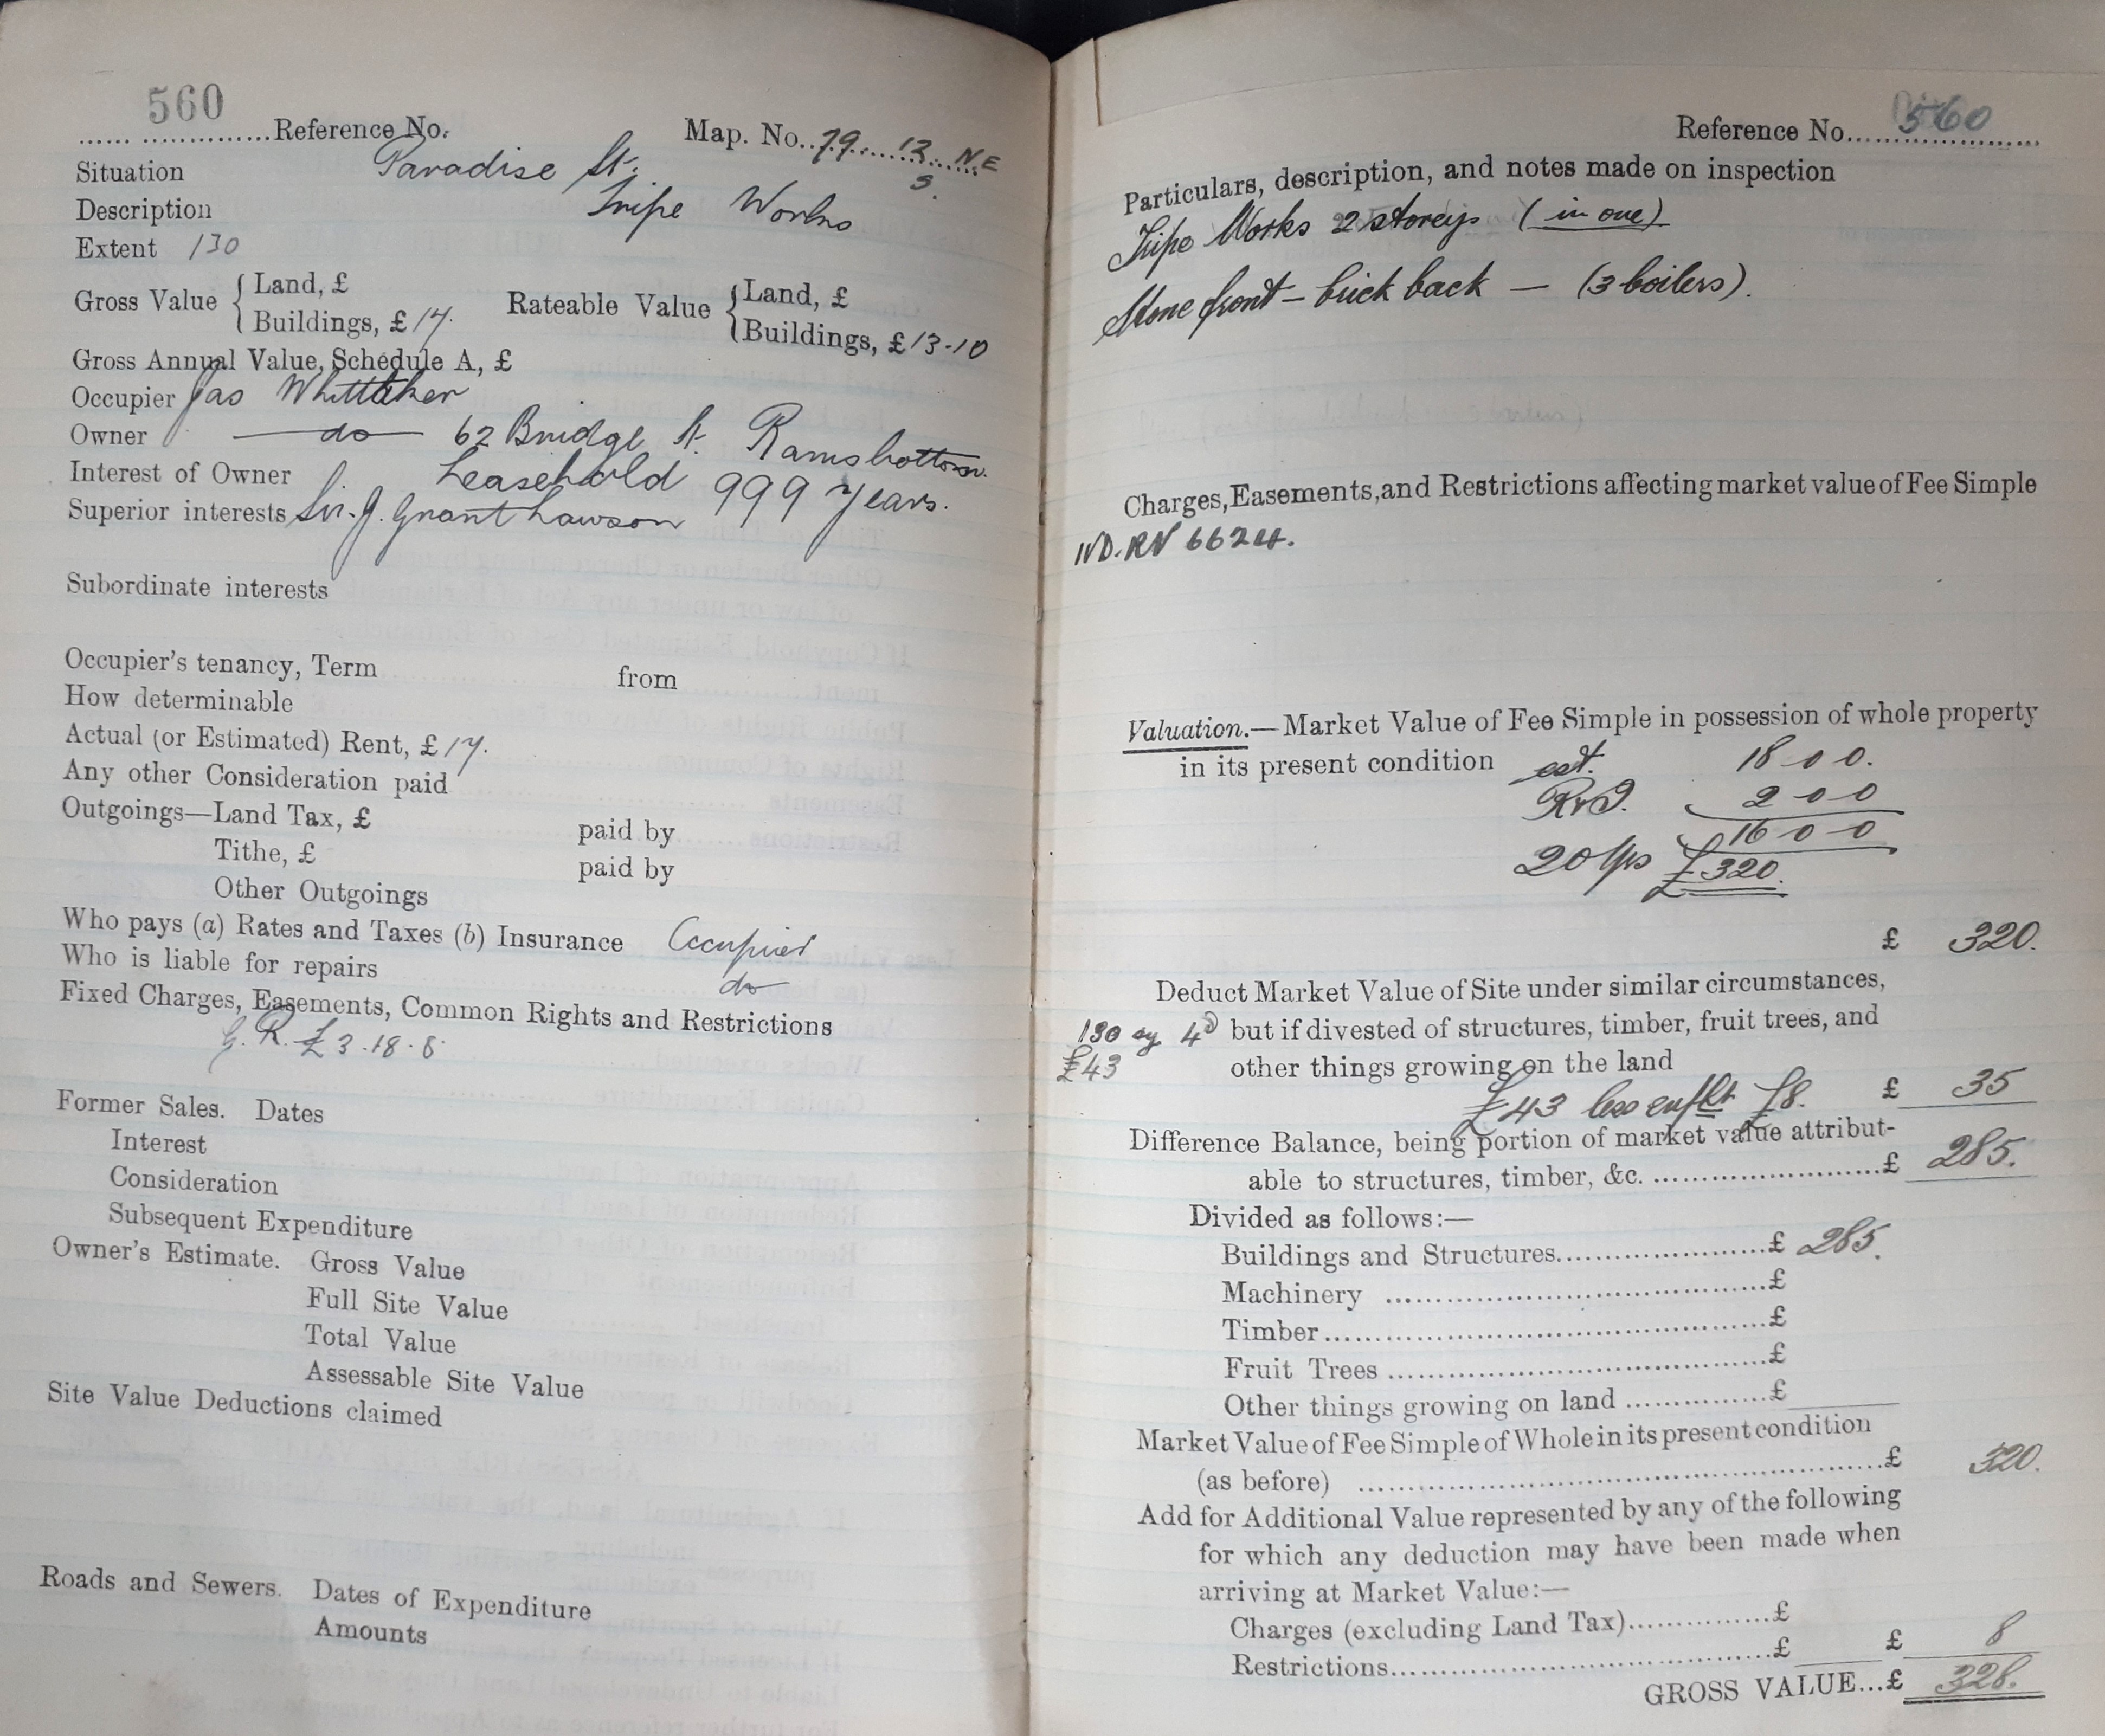 560
...... ..............Reference No.
Map. No. 79 13 N E
Situation Paradise St. S.
Description Tripe Works
Extent 130
Gross Value { Land, £
Buildings, £ 17.
Rateable Value { Land, £
Buildings, £ 13-10
Gross Annual Value, Schedule A, £
Occupier Jas Whittaker
Owner do 62 Bridge St. Ramsbottom.
Interest of Owner Leasehold 999 years.
Superior interests Sir. J. Grant Lawson
Subordinate interests
Occupier's tenancy, Term from
How determinable
Actual (or Estimated) Rent, £ 17.
Any other Consideration paid
Outgoings—Land Tax, £ paid by
Tithe, £ paid by
Other Outgoings
Who pays (a) Rates and Taxes (b) Insurance Occupier
Who is liable for repairs do
Fixed Charges, Easements, Common Rights and Restrictions
G. R. £ 3.18.8
Former Sales. Dates
Interest
Consideration
Subsequent Expenditure
Owner's Estimate. Gross Value
Full Site Value
Total Value
Assessable Site Value
Site Value Deductions claimed
Roads and Sewers. Dates of Expenditure
Amounts
Reference No. 560
Particulars, description, and notes made on inspection
Tripe Works 2 storeys (in one)
Stone front – brick back — (3 boilers).
Charges, Easements, and Restrictions affecting market value of Fee Simple
RN 6624.
Valuation.—Market Value of Fee Simple in possession of whole property
in its present condition est. 18 0 0.
2 0 0
16 0 0
20 yrs £320.
£ 320.
Deduct Market Value of Site under similar circumstances,
130 sy 4d but if divested of structures, timber, fruit trees, and
£43 other things growing on the land
£43 less £8. £ 35
Difference Balance, being portion of market value attribut-
able to structures, timber, &c. ........................£ 285.
Divided as follows:—
Buildings and Structures......................£ 285.
Machinery ......................................£
Timber............................................£
Fruit Trees ......................................£
Other things growing on land ...............£
Market Value of Fee Simple of Whole in its present condition
(as before) ......................................................£ 320.
Add for Additional Value represented by any of the following
for which any deduction may have been made when
arriving at Market Value:—
Charges (excluding Land Tax)...............£
Restrictions......................................£ £ 8
GROSS VALUE...£ 328.